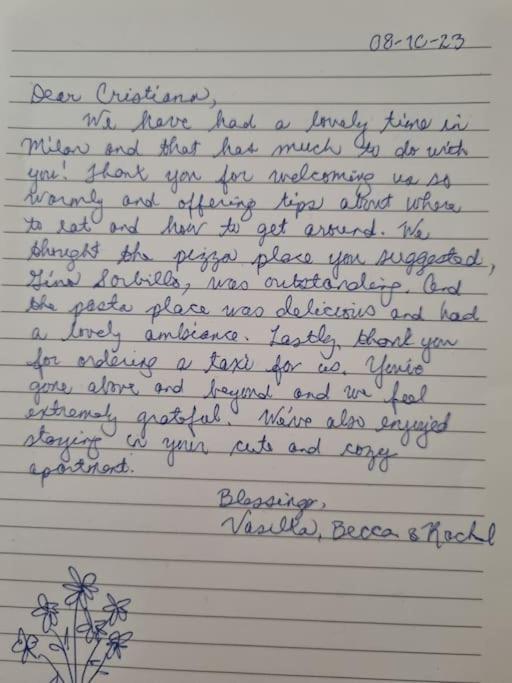 08-10-23
Dear Cristiann,
We have had a lovely time in
Milan and that has much to do with
you! Thank you for welcoming us so
warmly and offering tips about where
to eat and how to get around. We
thought the pizza place you suggested,
Gino Sorbillo, was outstanding. And
the pasta place was delicious and had
a lovely ambiance. Lastly, thank you
for ordering a taxi for us. You've
gone above and beyond and we feel
extremely grateful. We've also enjoyed
staying in your cute and cozy
apartment.
Blessings,
Vasilla, Becca & Rachl